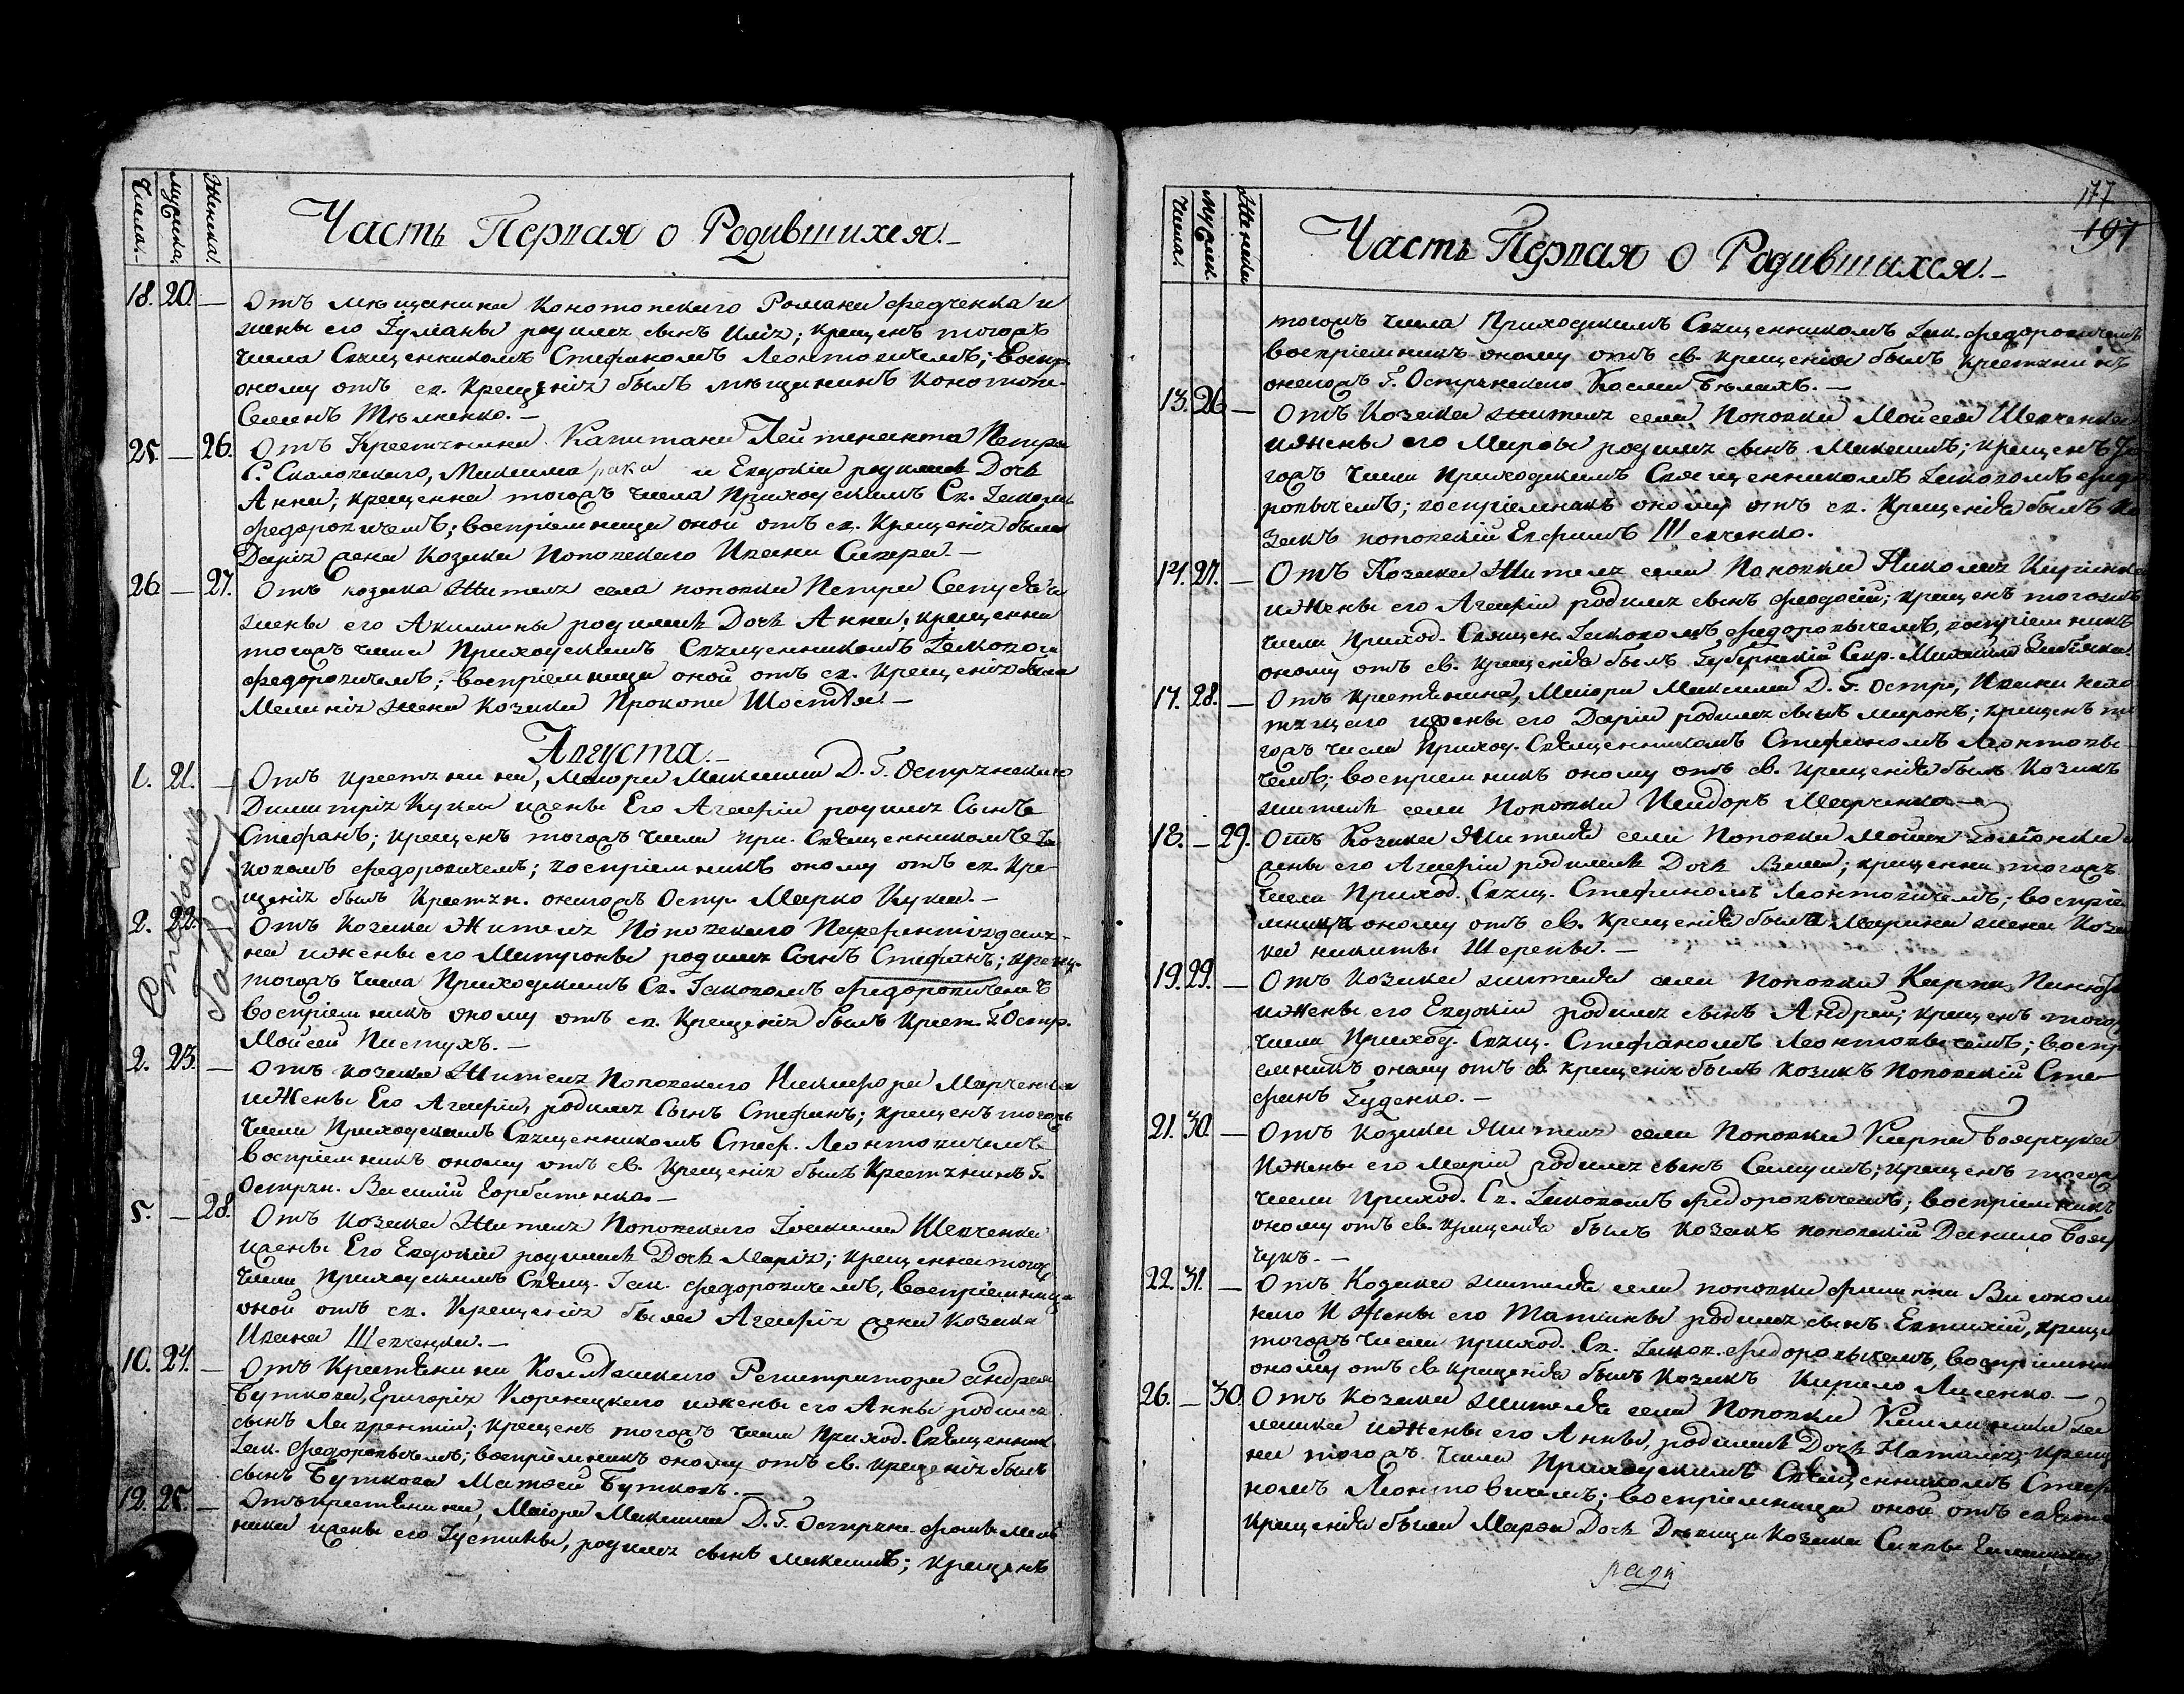 Числа.
мужеска.
Женска.
Часть Первая о Родившихся.
18. 20. — Отъ мѣщанина Конотопского Романа Федченка и
жены его Іулианы родился сынъ Илія; крещенъ тогожъ
числа Священникомъ Стефаномъ Леонтовичемъ; воспр.
оному отъ св. Крещенія былъ мѣщанинъ Конотопс.
Семенъ
25. — 26. Отъ Крестянина Капитана Лейтенанта Петра
С. Скалопского, Максима и Евдокіи родилась Дочь
Анна; крещенна тогожъ числа Приходскимъ Св. Іаковомъ
Федоровичемъ; воспріемница оной отъ св. Крещенія была
Дарія жена Козака Поповского Ивана
26 — 27. Отъ козака Жителя села поповки Петра и
жены его Акилины родилась Дочь Анна; крещенна
тогожъ числа Приходскимъ Священникомъ Іаковомъ
Федоровичемъ; воспріемница оной отъ св. Крещенія была
Меланія жена Козака Прокопа
Августа.
1. 21. — Отъ крестянина, Маіора Максима Д. Г. Острянского
Димитрія Кукси и жены Его Агафіи родился Сынъ
Стефанъ; крещенъ тогожъ числа при. Священникомъ Іа
ковомъ Федоровичемъ; воспріемникъ оному отъ св. Кре
щенія былъ Крестян. онагожъ Остр. Марко Кукса.
2. 22. — Отъ Козака Жителя Поповского
на и жены его Матроны родился Сынъ Стефанъ; крещ.
тогожъ числа Приходскимъ Св. Іаковомъ Федоровичемъ
воспріемникъ оному отъ св. Крещенія былъ Крест. Г. Остр.
Мойсей Пастухъ.
2. 23. — Отъ козака Жителя Поповского Никифора Марченка
и Жены Его Агафіи, родился Сынъ Стефанъ; крещенъ тогожъ
числа Приходскимъ Священникомъ Стеф. Леонтовичемъ
воспріемникъ оному отъ св. Крещенія былъ Крестянинъ Г.
Острян. Василій Горбатенко.
5. — 28. Отъ козака Жителя Поповского Іоакима Шевченка
и жены Его Евдокіи родилась Дочь Марія; крещенна тогожъ
числа Приходскимъ Свящ. Іак. Федоровичемъ, воспріемница
оной отъ св. Крещенія была Агафія жена Козака
Ивана Шевченка.
10. 24. — Отъ Крестянина Коллежского Регистратора Андрея
Буткова, Григорія Корницкого и жены его Анны родился
сынъ Лаврентій; крещенъ тогожъ числа Приход. Священник.
Іак. Федоровичемъ; воспріемникъ оному отъ св. крещенія былъ
сынъ Буткова Матвей Бутковъ.
12. 25. — Отъ крестянина, Маіора Максима Д. Г. Острян. Фомы
и жены его Іустины, родился сынъ Максимъ; крещенъ
Стефанъ
177
197
Числа.
мужеск
Женска
Часть Первая о Родившихся.
тогожъ числа Приходскимъ Священникомъ Іак. Федоровичемъ
воспріемникъ оному отъ св. крещенія былъ крестянинъ
онагожъ Г. Острянского Косма Бѣлихъ.
13. 26 — Отъ Козака жителя села Поповки Мойсея Шевченка
и жены его Марфы родился сынъ Максимъ; крещенъ то
гожъ числа приходскимъ Священникомъ Іаковомъ Федо
ровичемъ; воспріемникъ оному отъ св. крещенія былъ ко
закъ поповскій Евфимъ Шевченко.
14. 27. — Отъ Козака Жителя села Поповки Николая
и Жены его Агафіи родился сынъ Феодосій; крещенъ тогожъ
числа Приход. Священ. Іаковомъ Федоровичемъ, воспріемникъ
оному отъ св. крещенія былъ Губернскій Секр. Михаилъ
17. 28. — Отъ крестянина, Маіора Максима Д. Г. Остр., Ивана
и жены его Даріи родился сынъ Миронъ; крещенъ то
гожъ числа приход. Священникомъ Стефаномъ Леонтови
чемъ; воспріемникъ оному отъ св. крещенія былъ Козакъ
житель села Поповки Исидоръ Марченко
18. — 29. Отъ Козака Жителя села Поповки Мойсея и
жены его Агафіи родилась Дочь Васса; крещенна тогожъ
числа Приход. Свящ. Стефаномъ Леонтовичемъ; воспріе
мница оному отъ св. крещенія была Марина жена Коза
ка никиты Шерепы.
19. 29. — Отъ козака жителя села Поповки Карпа
и жены его Евдокіи родился сынъ Андрей; крещенъ тогож
числа Приход. Свящ. Стефаномъ Леонтовичемъ; воспрі
емникъ оному отъ св крещенія былъ козакъ Поповскій Сте
фанъ Гуденко.
21. 30. — Отъ козака Жителя села Поповки Карпа Боярчука
и жены его Маріи родился сынъ Самуилъ; крещенъ тогож
числа приход. Св. Іаковомъ Федоровичемъ; воспріемникъ
оному отъ св. крещенія былъ козакъ поповскій Данило Бояр
чукъ.
22. 31. — Отъ Козака жителя села поповки Филиппа
и Жены его Татіаны родился сынъ Евтихій, крещен
тогожъ числа приход. Св. Іаков. Федоровичемъ, воспріемник
оному отъ св крещенія былъ козакъ Кирило Лисенко.
26. — 30 Отъ козака жителя села Поповки
и Жены его Анны, родилась Дочь Наталія; крещен
на тогожъ числа Приходскимъ Священникомъ Стефа
номъ Леонтовичемъ; воспріемница оной отъ свята
крещенія была Марфа Дочь Дѣвица козака Савы